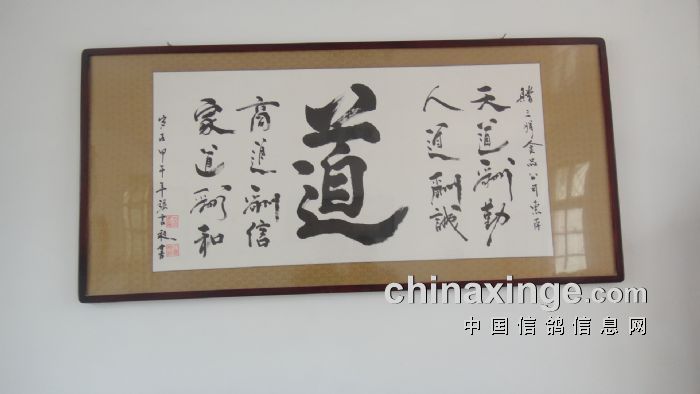 食品公司惠存
天道酬勤
人道酬誠
道
商道酬信
家道酬和
甲午年 書
chinaxinge.com
中国信鸽信息网